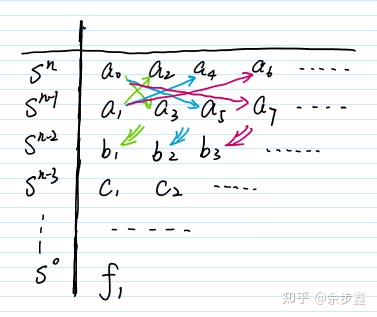 Sⁿ a₀ a₂ a₄ a₆ -----
Sⁿ⁻¹ a₁ a₃ a₅ a₇ ----
Sⁿ⁻² b₁ b₂ b₃ ------
Sⁿ⁻³ C₁ C₂ -----
-----
S⁰ f₁
知乎 @余步鑫